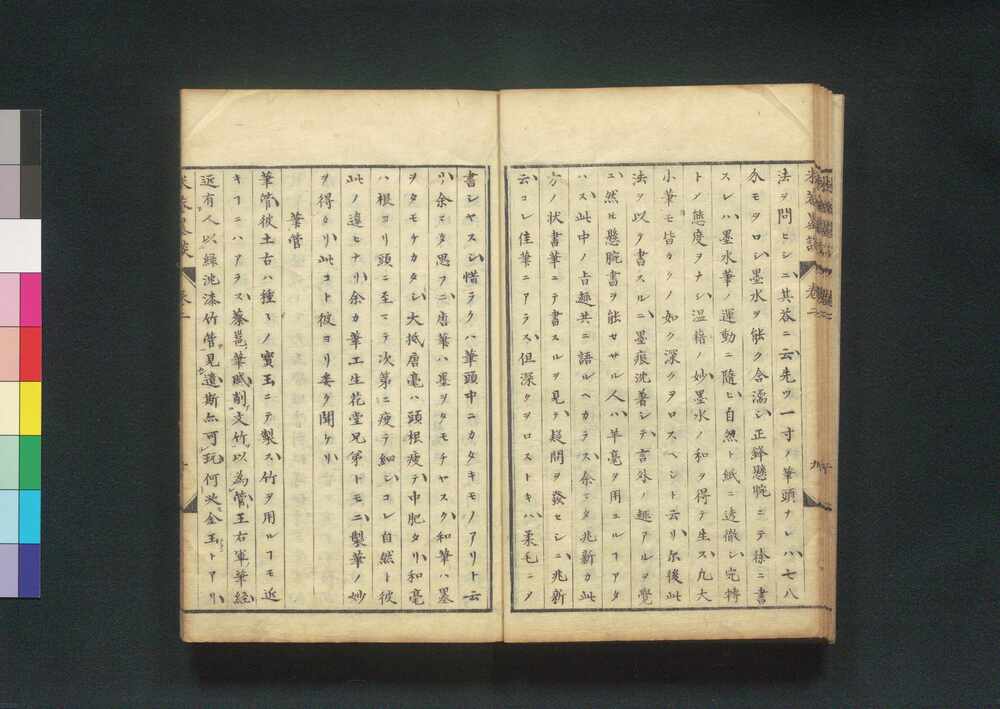 米菴墨談 卷二
法ヲ問ヒシニ其荅ニ云先ツ一寸ノ筆頭ナレハ七八
分モヲロシ墨水ヲ能ク含濡シ正鋒懸腕ニテ徐ニ書
スレハ墨水筆ノ運動ニ隨ヒ自然ト紙ニ透徹シ完特
トノ態度ヲナシ温藉ノ妙墨水ノ和ヲ得テ生ス凢大
小筆モ皆カクノ如ク深クヲロスヘシト云リ尓後此
法ヲ以テ書スルニ墨痕沈著シテ言外ノ趣アルヲ覺
ユ然ヒ懸腕書ヲ能セサル人ハ羊毫ヲ用ユルヿアタ
ハス此中ノ占趣共ニ語ルヘカラス余マタ兆新カ此
方ノ状書筆ニテ書スルヲ見テ疑問ヲ發セシニ兆新
云コレ佳筆ニアラス但深クヲロストキハ柔毛ニノ
書シヤスシ惜ラクハ筆頭中ニカタキモノアリト云
リ余マタ思フニ唐筆ハ墨ヲタモチヤスク和筆ハ墨
ヲタモケカタシ大抵唐毫ハ頭根瘦テ中肥タリ和毫
ハ根ヨリ頭ニ至マテ次第ニ瘦テ細シコレ自然ト彼
此ノ違ヒナリ余カ筆工生花堂兄第トモニ製筆ノ妙
ヲ得タリ此コト彼ヨリ委ク聞ケリ
筆管
筆管彼土古ハ種々ノ寶玉ニテ製ス竹ヲ用ルヿモ近
キヿニハアラス蔡邕筆賦削文竹以為管王右軍筆經
近有人以綠沈漆竹管見遺斯亦可玩何必金玉トアリ
米菴墨談 卷二